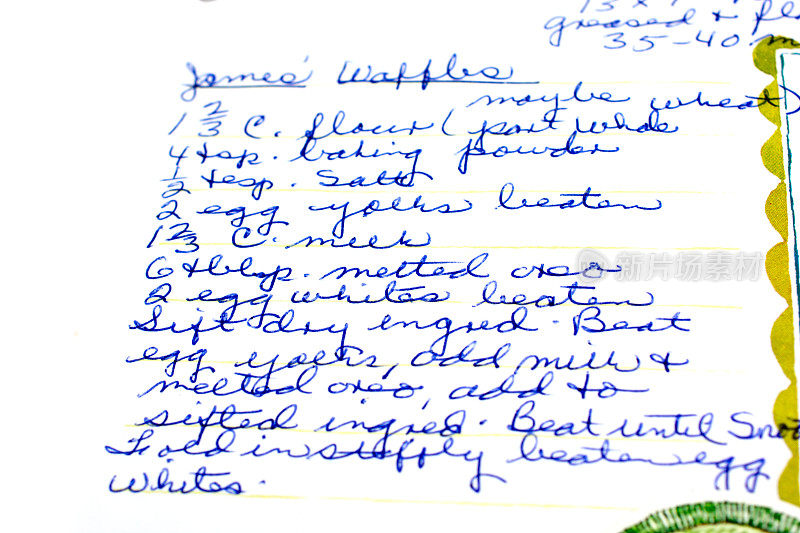 13 x
greased + fl
35-40 m
James' Waffles
maybe wheat)
1 2/3 C. flour (part whole
4 tsp. baking powder
1/2 tesp. Salt
2 egg yolks beaten
1 2/3 C. milk
6 tblsp. melted oreo
2 egg whites beaten
Sift dry ingred. Beat
egg yolks, add milk +
melted oreo, add to
sifted ingred. Beat until Smoo
Fold in stiffly beaten egg
whites.
新片场素材